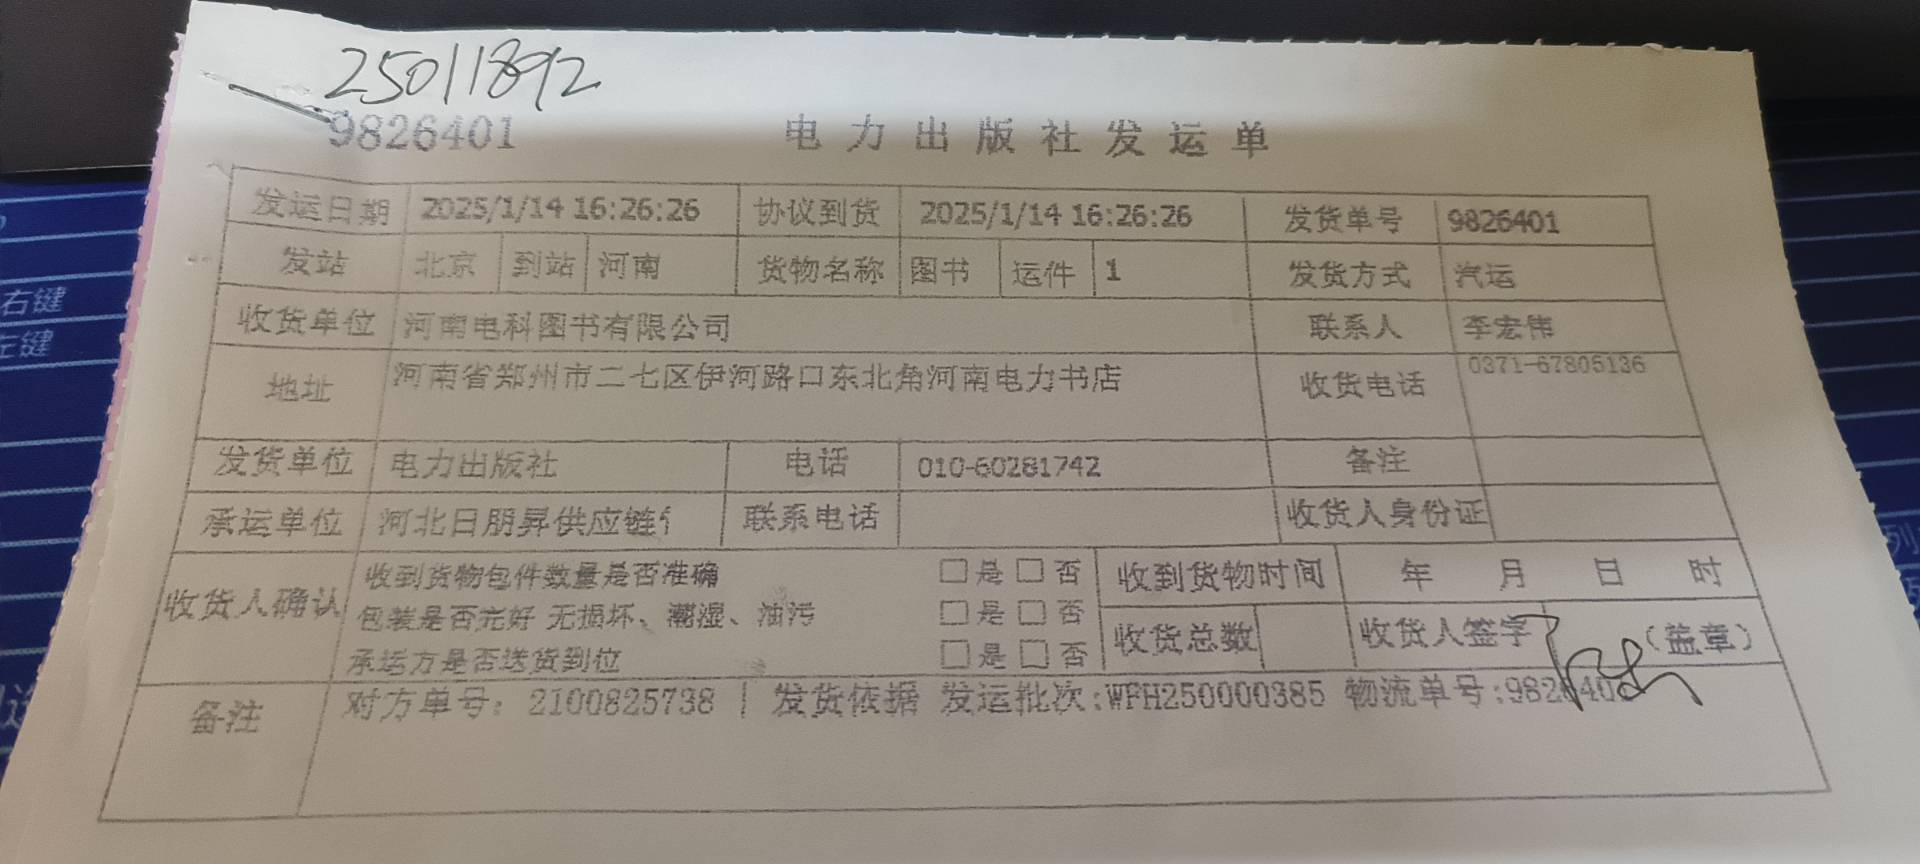 25011892
9826401
电力出版社发运单
发运日期 2025/1/14 16:26:26 协议到货 2025/1/14 16:26:26 发货单号 9826401
发站 北京 到站 河南 货物名称 图书 运件 1 发货方式 汽运
收货单位 河南电科图书有限公司 联系人 李宏伟
地址 河南省郑州市二七区伊河路口东北角河南电力书店 收货电话 0371-67805136
发货单位 电力出版社 电话 010-60281742 备注
承运单位 河北日朋昇供应链 联系电话 收货人身份证
收货人确认 收到货物包件数量是否准确 □是□否 收到货物时间 年 月 日 时
包装是否完好 无损坏、潮湿、油污 □是□否
承运方是否送货到位 □是□否 收货总数 收货人签字 (盖章)
备注 对方单号: 2100825738 | 发货依据 发运批次:WFH250000385 物流单号:9826401
右键
左键
列